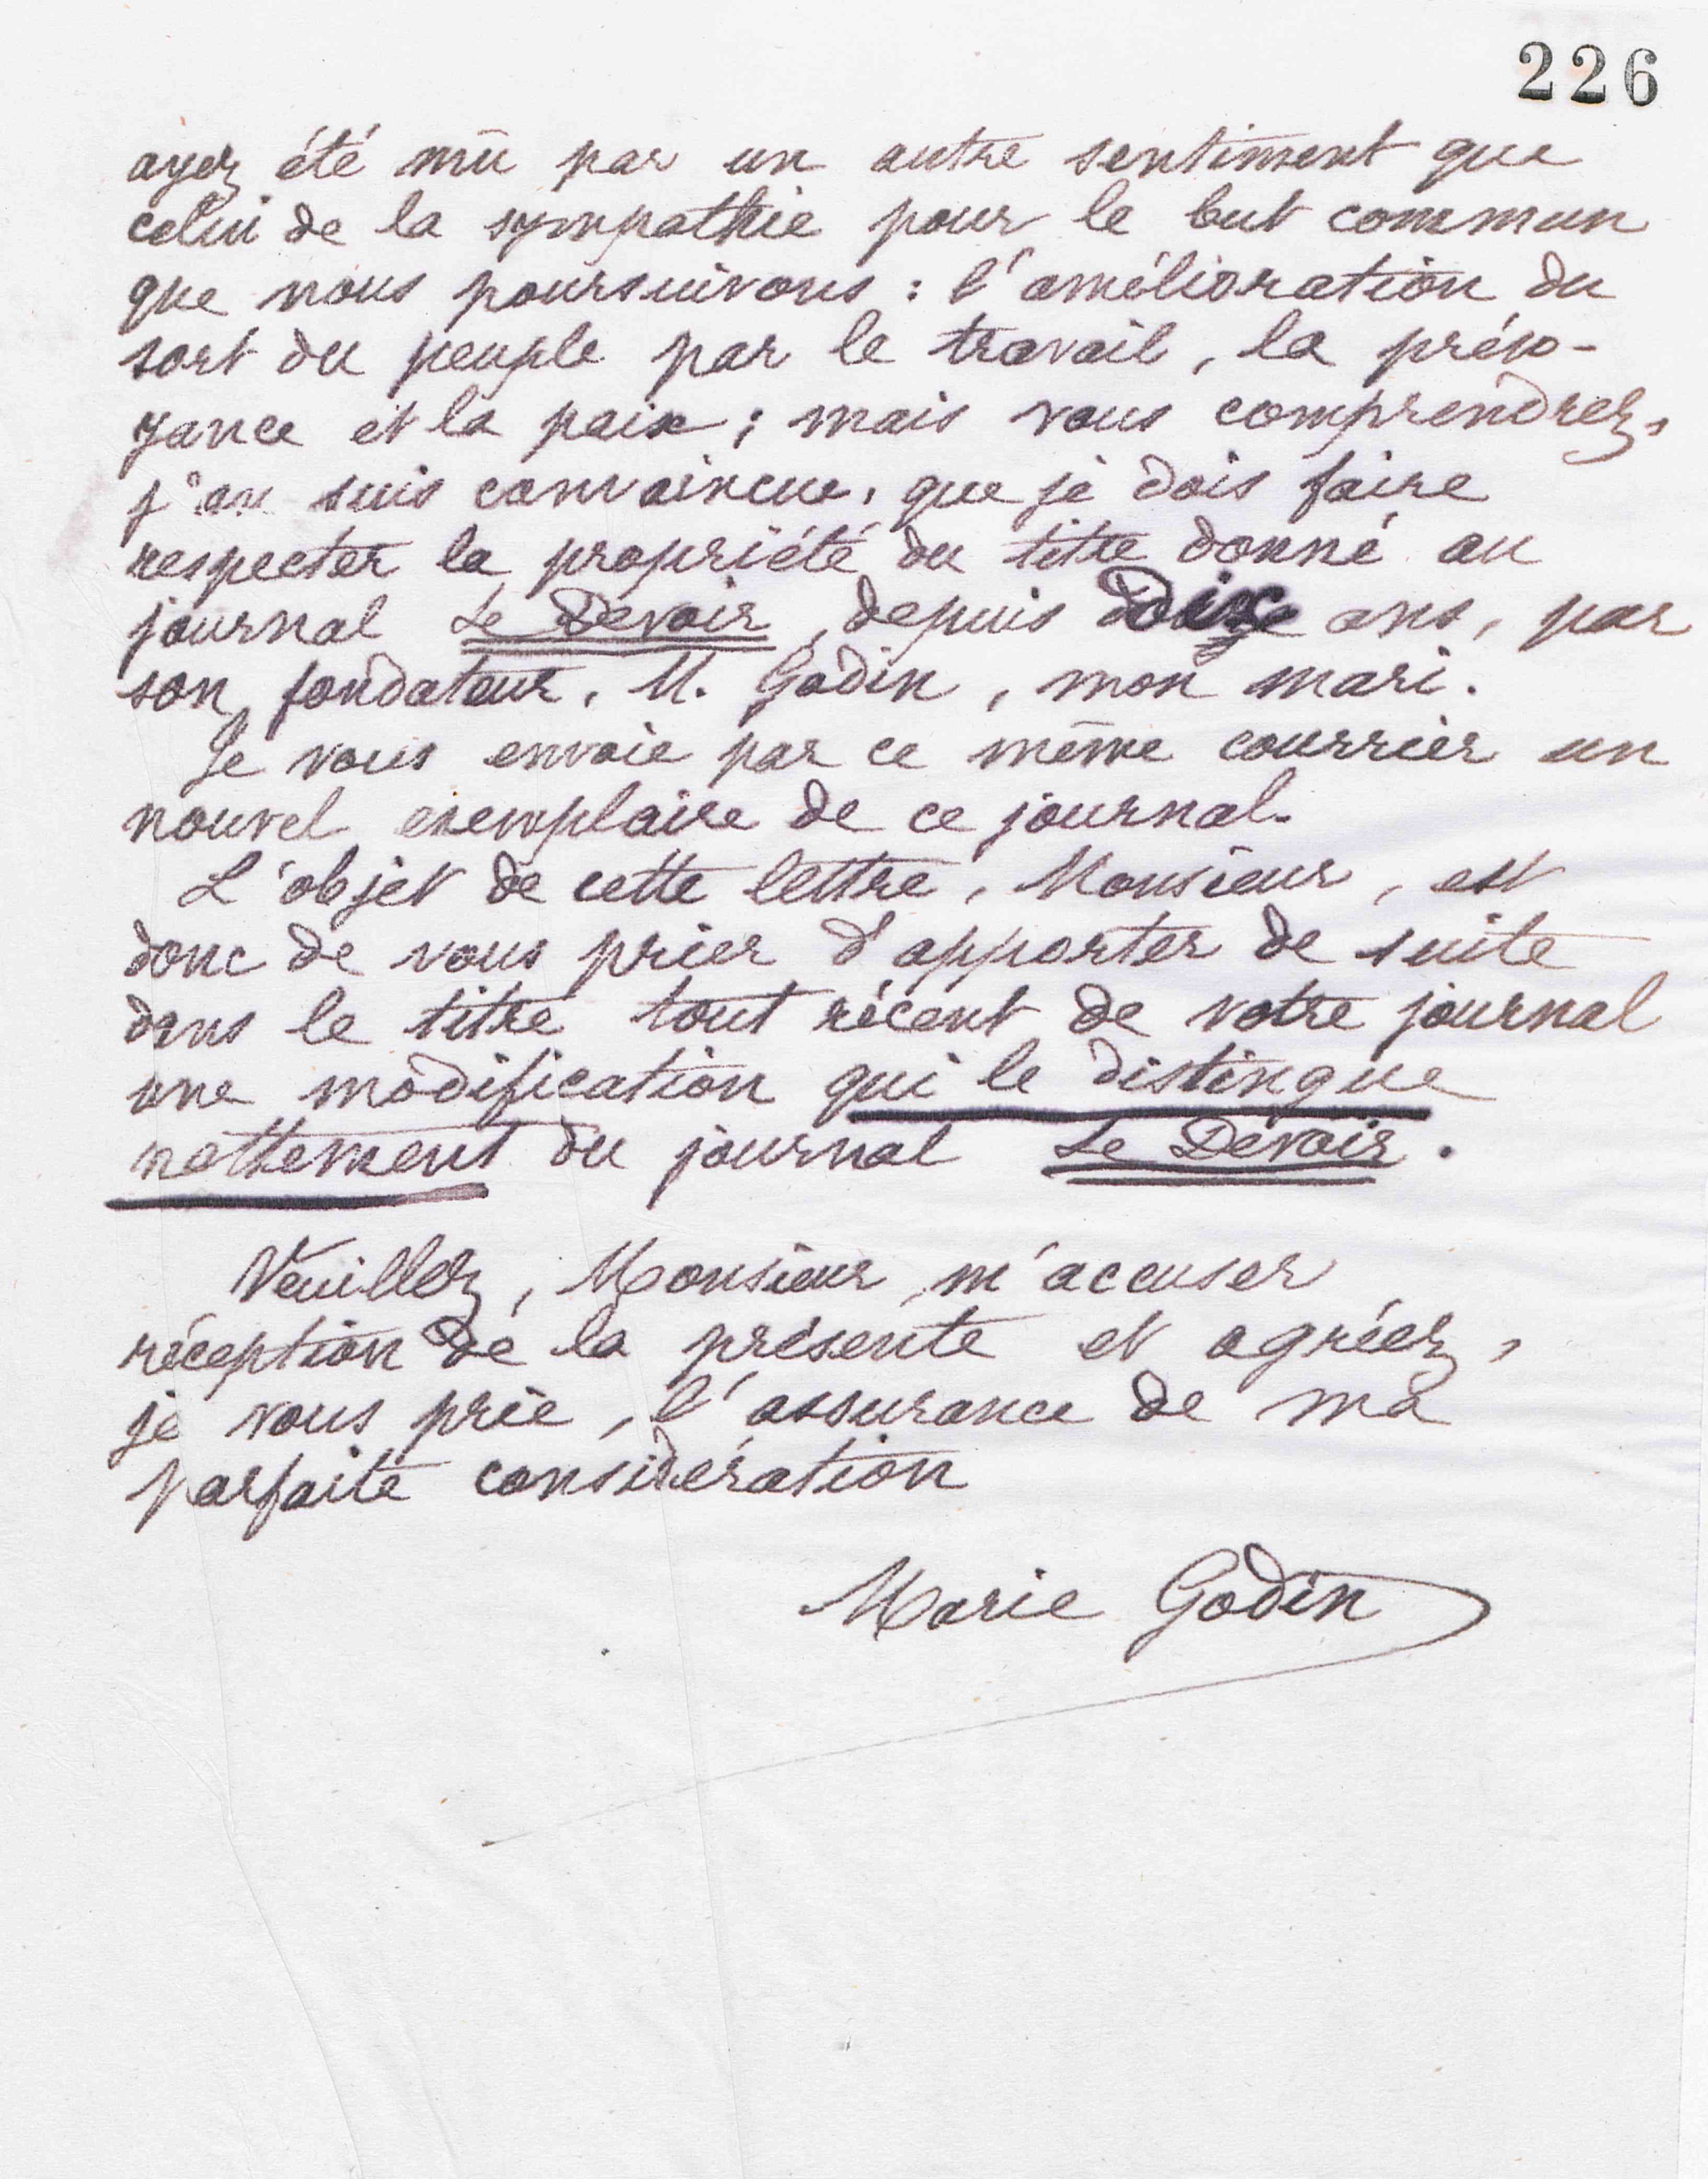 226
ayez été mû par un autre sentiment que
celui de la sympathie pour le but commun
que nous poursuivons : l'amélioration du
sort du peuple par le travail, la prévo-
yance et la paix ; mais vous comprendrez,
j'en suis convaincue, que je dois faire
respecter la propriété du titre donné au
journal Le Devoir, depuis Dix ans, par
son fondateur, M. Godin, mon mari.
Je vous envoie par ce même courrier un
nouvel exemplaire de ce journal.
L'objet de cette lettre, Monsieur, est
donc de vous prier d'apporter de suite
dans le titre tout récent de votre journal
une modification qui le distingue
nettement du journal Le Devoir.
Veuillez, Monsieur, m'accuser
réception de la présente et agréez,
je vous prie, l'assurance de ma
parfaite considération
Marie Godin